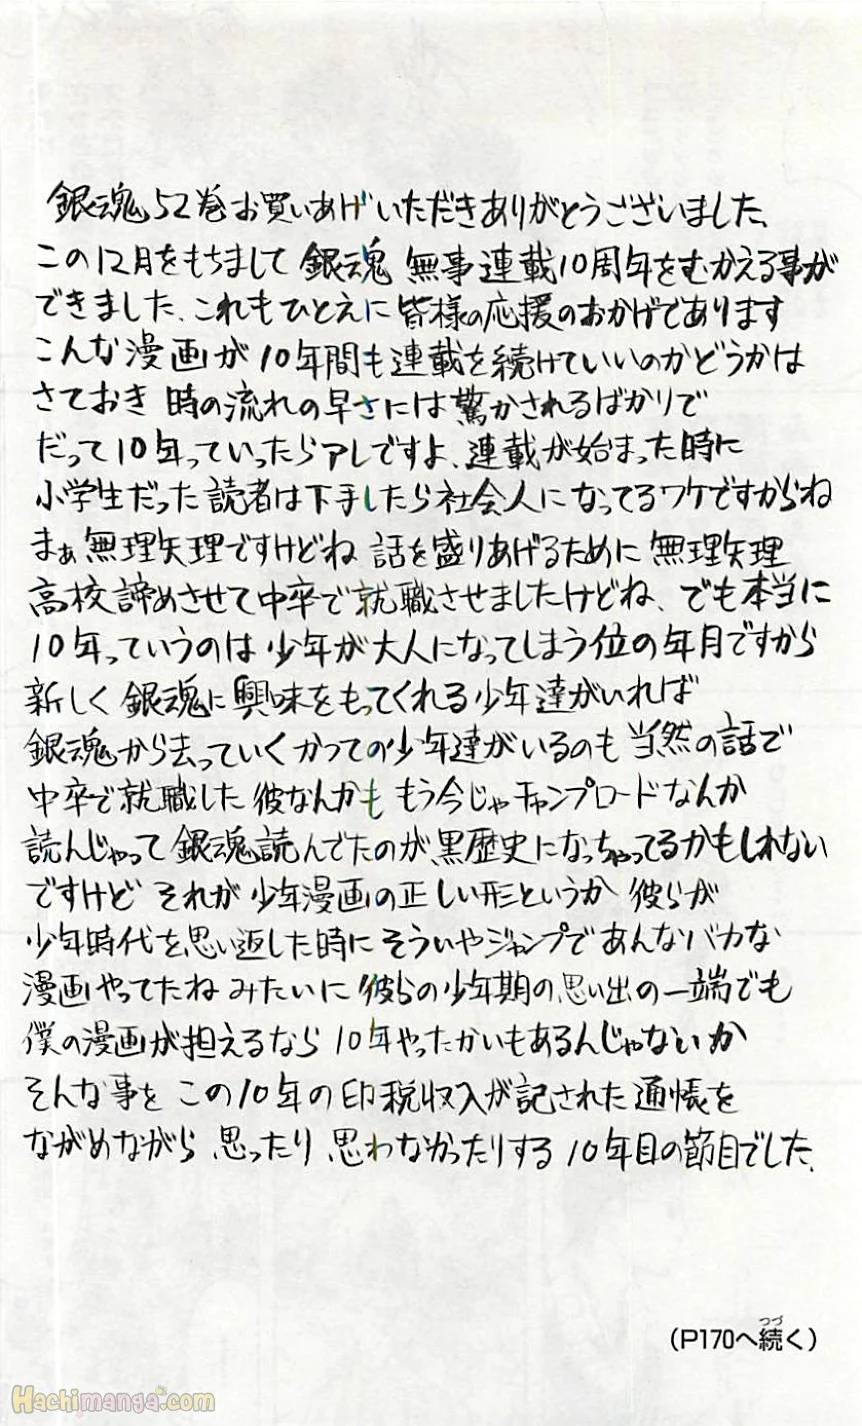 銀魂52巻お買いあげいただきありがとうございました、
この12月をもちまして 銀魂 無事連載10周年をむかえる事が
できました、これもひとえに皆様の応援のおかげであります
こんな漫画が10年間も連載を続けていいのかどうかは
さておき 時の流れの早さには驚かされるばかりで
だって10年っていったらアレですよ、連載が始まった時に
小学生だった読者は下手したら社会人になってるワケですからね
まぁ無理矢理ですけどね 話を盛りあげるために 無理矢理
高校諦めさせて中卒で就職させましたけどね、でも本当に
10年っていうのは少年が大人になってしまう位の年月ですから
新しく銀魂に興味をもってくれる少年達がいれば
銀魂から去っていくかつての少年達がいるのも当然の話で
中卒で就職した彼なんかも もう今じゃチャンプロードなんか
読んじゃって銀魂読んでたのが、黒歴史になっちゃってるかもしれない
ですけど それが少年漫画の正しい形というか 彼らが
少年時代を思い返した時に そういやジャンプであんなバカな
漫画やってたね みたいに 彼らの少年期の思い出の一端でも
僕の漫画が担えるなら 10年やったかいもあるんじゃないか
そんな事を この10年の印税収入が記された通帳を
ながめながら 思ったり 思わなかったりする 10年目の節目でした、
(P170へ続く)
つづ
Hachimanga.com